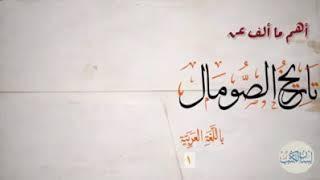 أهم ما ألف عن
تاريخ الصومال
باللغة العربية
١